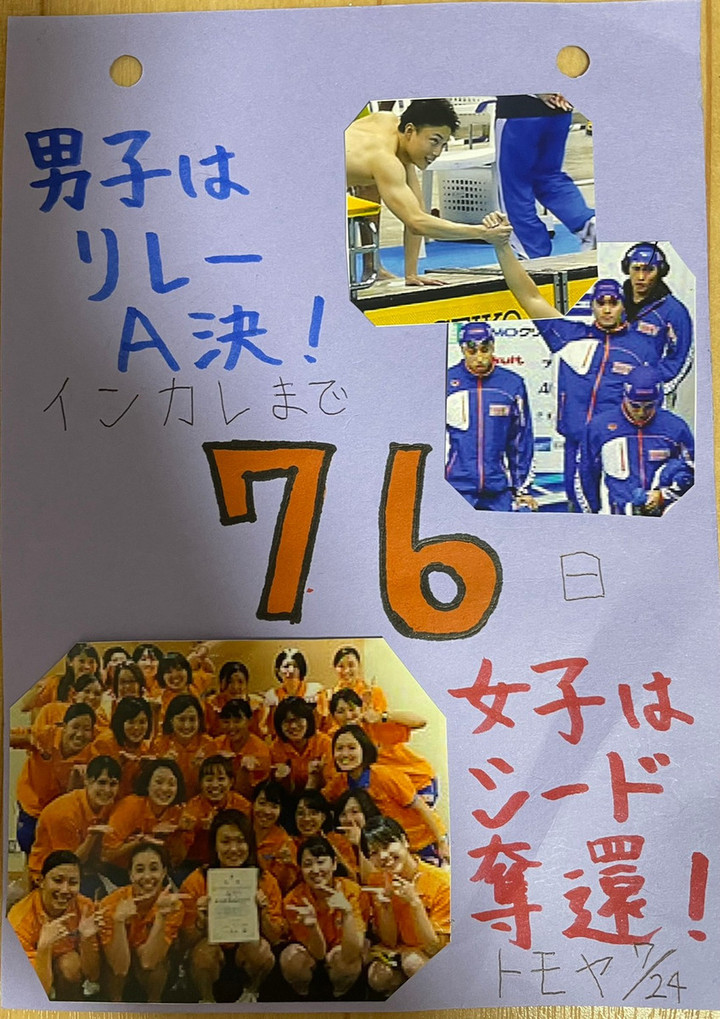 男子は
リレー
A決！
インカレまで
76日
女子は
シード
奪還！
トモヤ 7/24